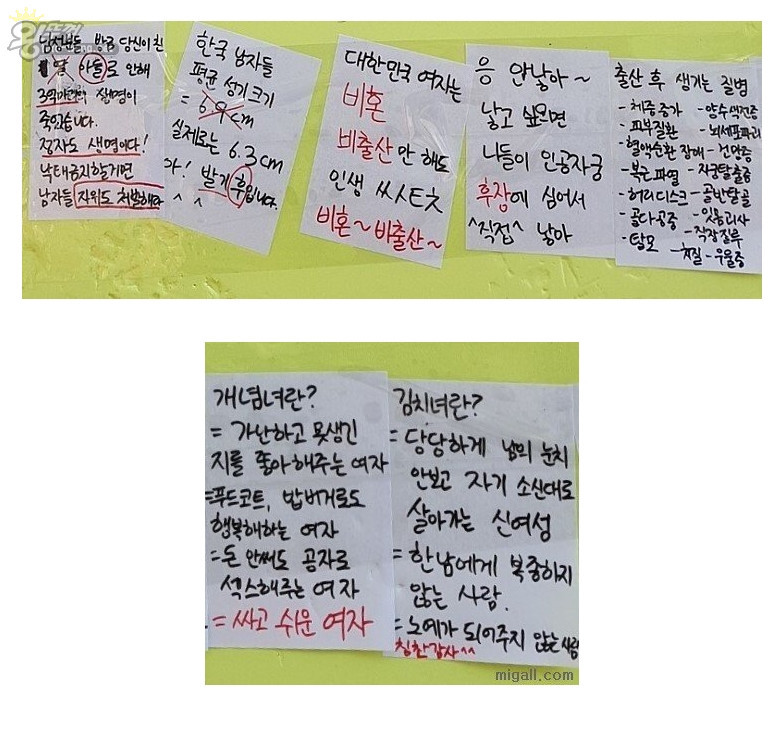 남성분들 방금 당신이 친
딸로 인해
3억마리의 생명이
죽었습니다.
정자도 생명이다!
낙태금지할거면
남자들 자위도 처벌해라
한국 남자들
평균 성기크기
= 6.9cm
실제로는 6.3cm
아! 발기후입니다.
^ ^
대한민국 여자는
비혼
비출산 안 해도
인생 씨스터츠
비혼~비출산~
응 안낳아~
낳고 싶으면
니들이 인공자궁
후장에 심어서
^직접^ 낳아
출산 후 생기는 질병
-체중증가 -양수색전증
-피부질환 -뇌세포파괴
-혈액순환 장애 -건망증
-복근파열 -자궁탈출증
-허리디스크 -골반탈골
-골다공증 -잇몸
-탈모 -직장질루
-치질 -우울증
개념녀란?
= 가난하고 못생긴
지를 좋아해주는 여자
=푸드코트, 밥버거로도
행복해하는 여자
=돈 안써도 공짜로
섹스해주는 여자
= 싸고 쉬운 여자
김치녀란?
= 당당하게 남의 눈치
안보고 자기 소신대로
살아가는 신여성
=한남에게 복종하지
않는 사람.
=노예가 되어주지 않는 사람
칭찬감사^^
migall.com